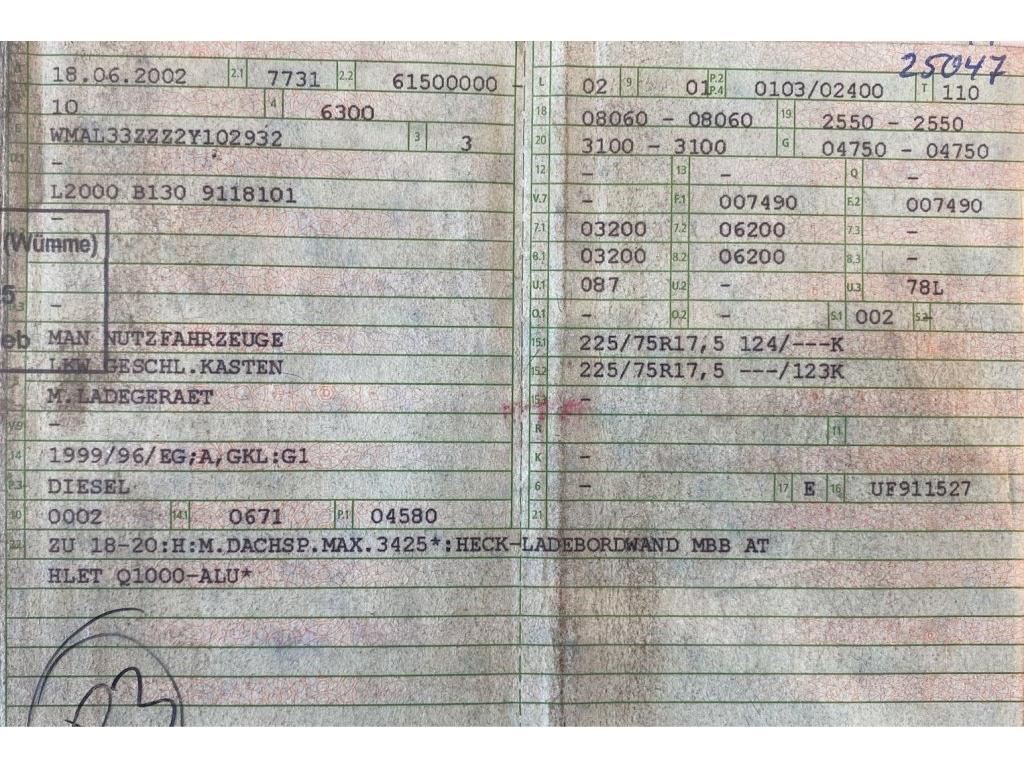 25047
B 18.06.2002 2.1 7731 2.2 61500000
L 02 9 01 P.2 P.4 0103/02400 T 110
10 4 6300
18 08060 - 08060 19 2550 - 2550
E WMAL33ZZZ2Y102932 3 3
20 3100 - 3100 G 04750 - 04750
D.1 -
12 - 13 - Q -
L2000 B130 9118101
V.7 - F.1 007490 F.2 007490
-
7.1 03200 7.2 06200 7.3 -
(Wümme)
8.1 03200 8.2 06200 8.3 -
U.1 087 U.2 - U.3 78L
5
-
O.1 - O.2 - S.1 002 S.2 -
eb
MAN NUTZFAHRZEUGE
15.1 225/75R17,5 124/---K
LKW GESCHL.KASTEN
15.2 225/75R17,5 ---/123K
M.LADEGERAET
15.3 -
V.9 -
R 11
14 1999/96/EG;A,GKL:G1
K -
P.3 DIESEL
6 - 17 E 16 UF911527
10 0002 14.1 0671 P.1 04580
21
22 ZU 18-20:H:M.DACHSP.MAX.3425*:HECK-LADEBORDWAND MBB AT
HLET Q1000-ALU*